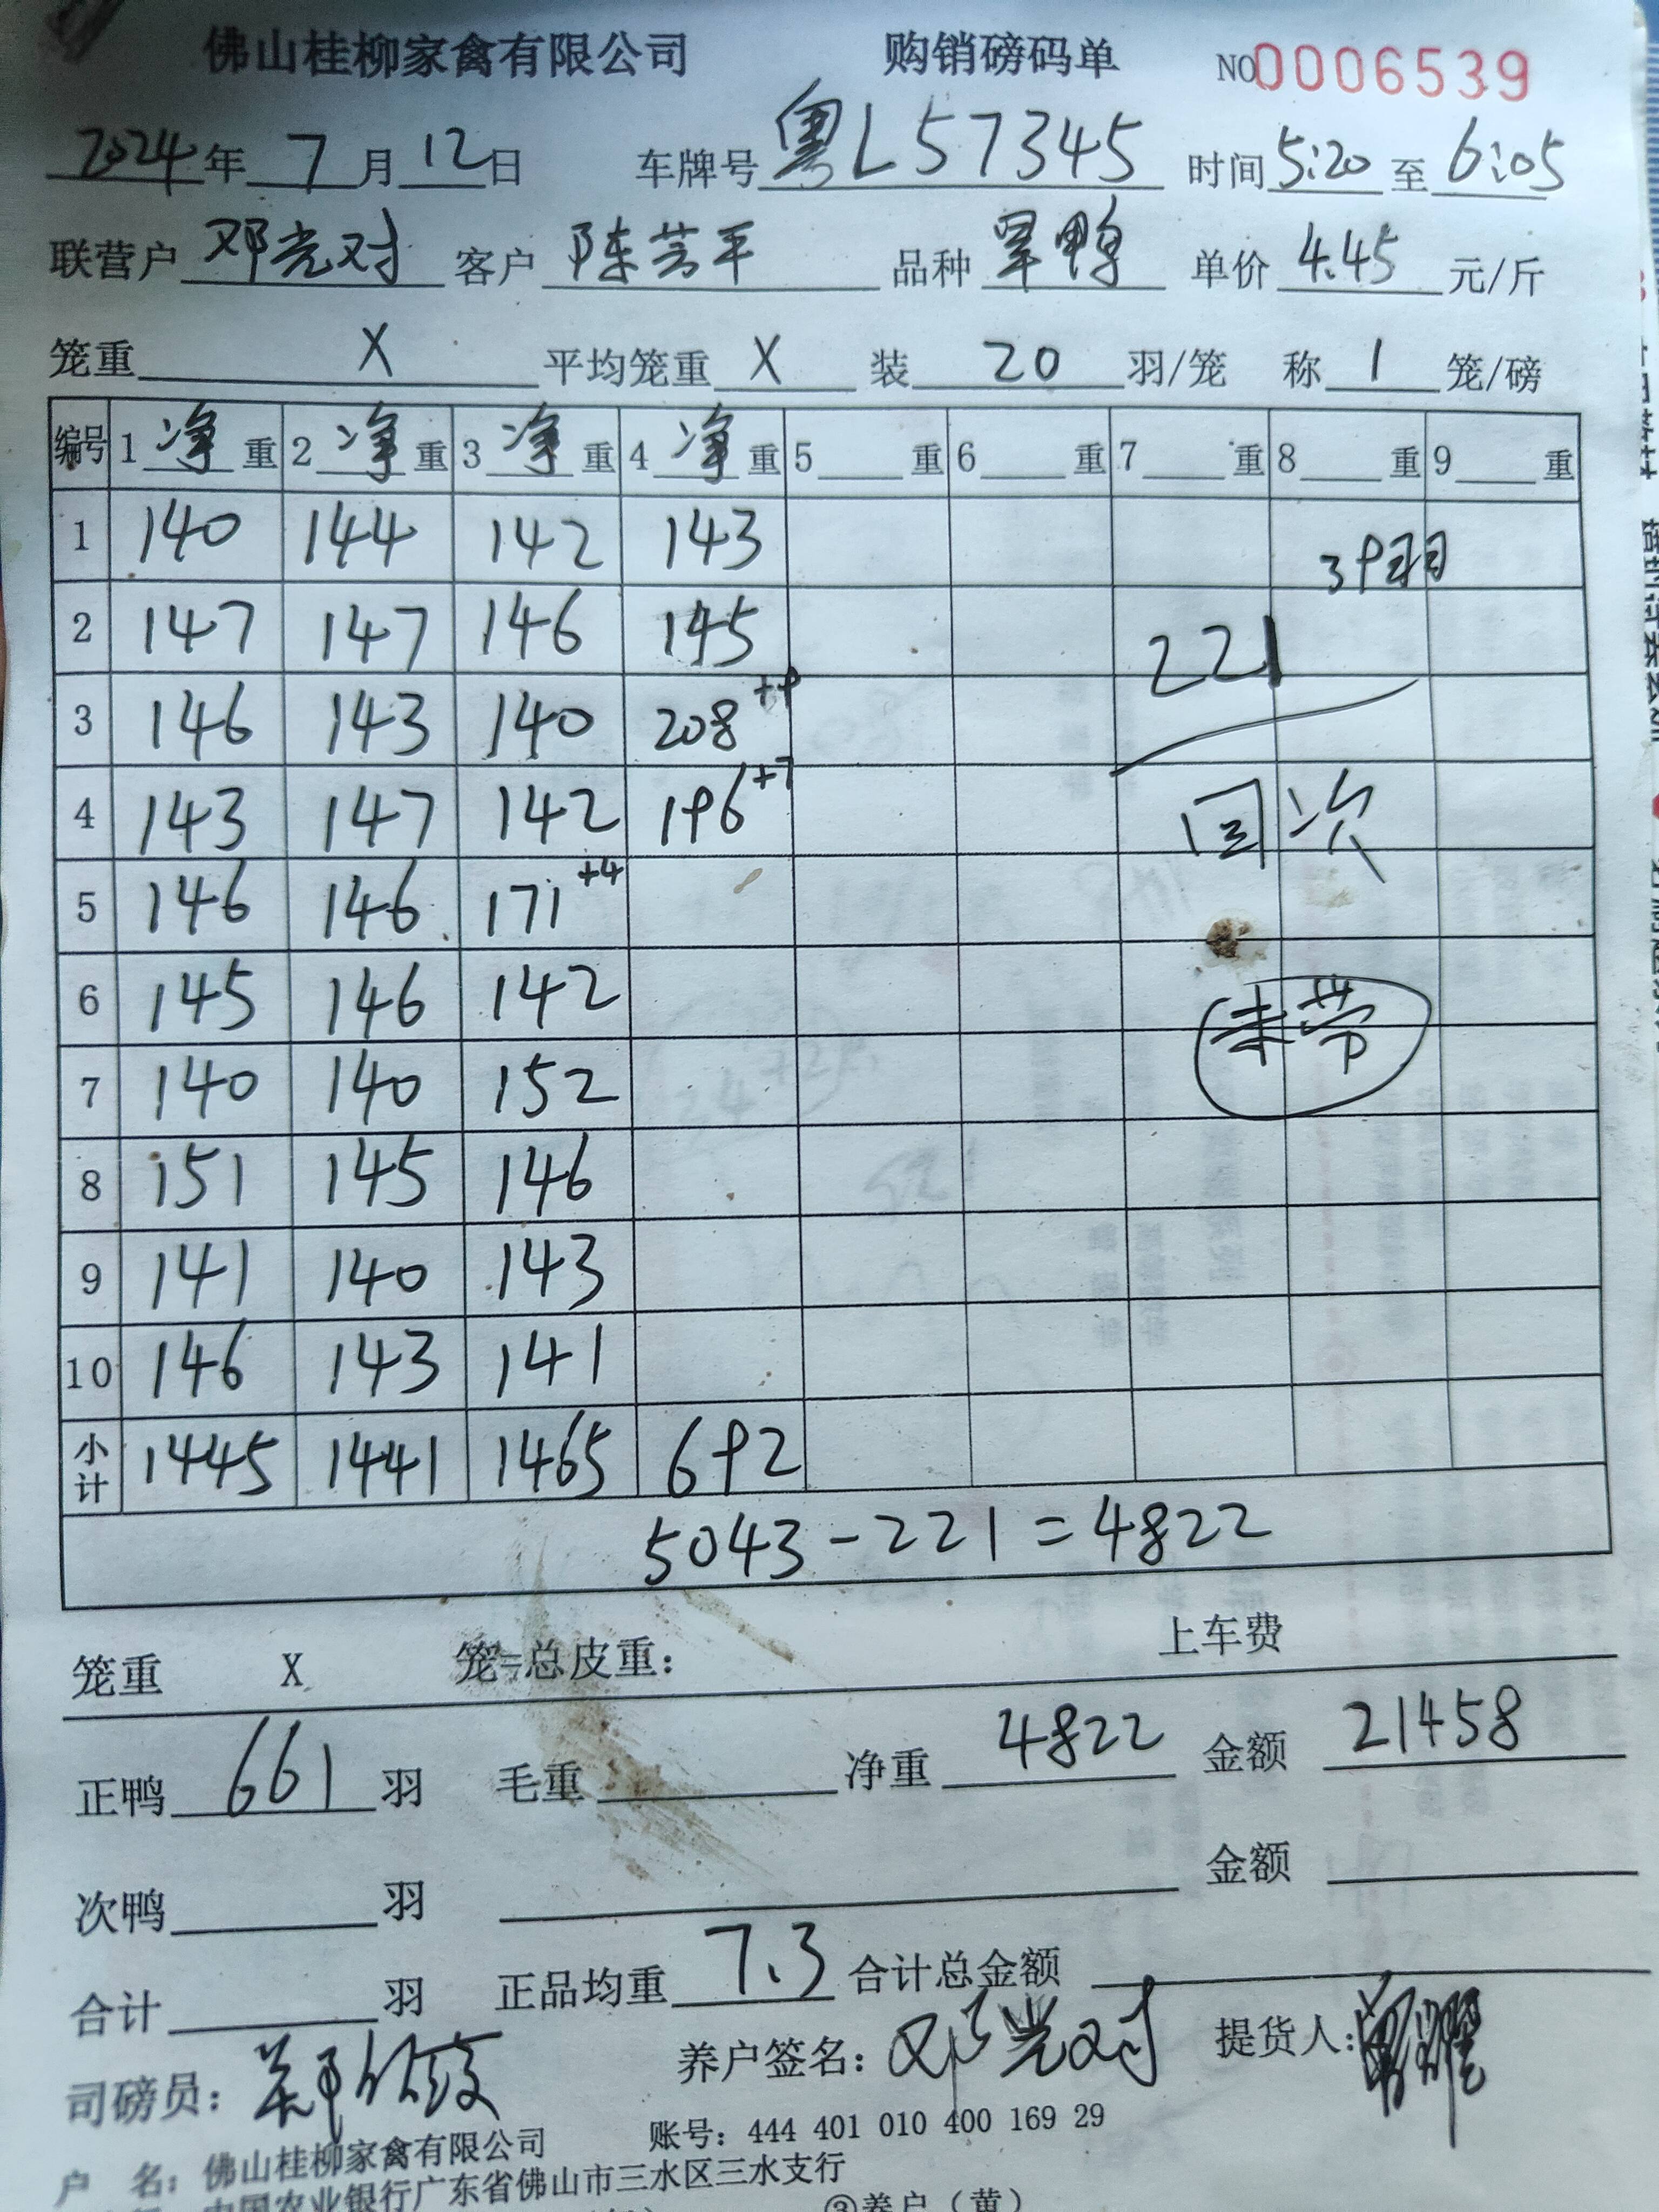 佛山桂柳家禽有限公司 购销磅码单 NO0006539
2024年7月12日 车牌号粤L57345 时间5:20至6:05
联营户邓光对 客户陈芳平 品种旱鸭 单价4.45元/斤
笼重X 平均笼重X 装20羽/笼 称1笼/磅
编号 1净重 2净重 3净重 4净重 5重 6重 7重 8重 9重
1 140 144 142 143 39羽
2 147 147 146 145 221
3 146 143 140 208+9
4 143 147 142 196+7 回次
5 146 146 171+4
6 145 146 142 未带
7 140 140 152
8 151 145 146
9 141 140 143
10 146 143 141
小计 1445 1441 1465 692
5043-221=4822
笼重 X 笼=总皮重: 上车费
正鸭661羽 毛重 净重4822 金额21458
次鸭 羽 金额
合计 羽 正品均重7.3 合计总金额
司磅员: 养户签名:邓光对 提货人:
户 名:佛山桂柳家禽有限公司 账号:444 401 010 400 169 29
中国农业银行广东省佛山市三水区三水支行
③养户(黄)